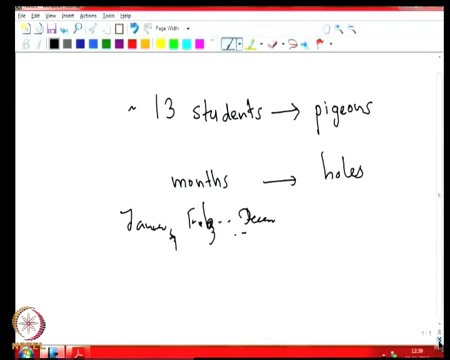 File Edit View Insert Actions Tools Help
Page Width
~ 13 students → pigeons
months → holes
1/1
NPTEL
12:39